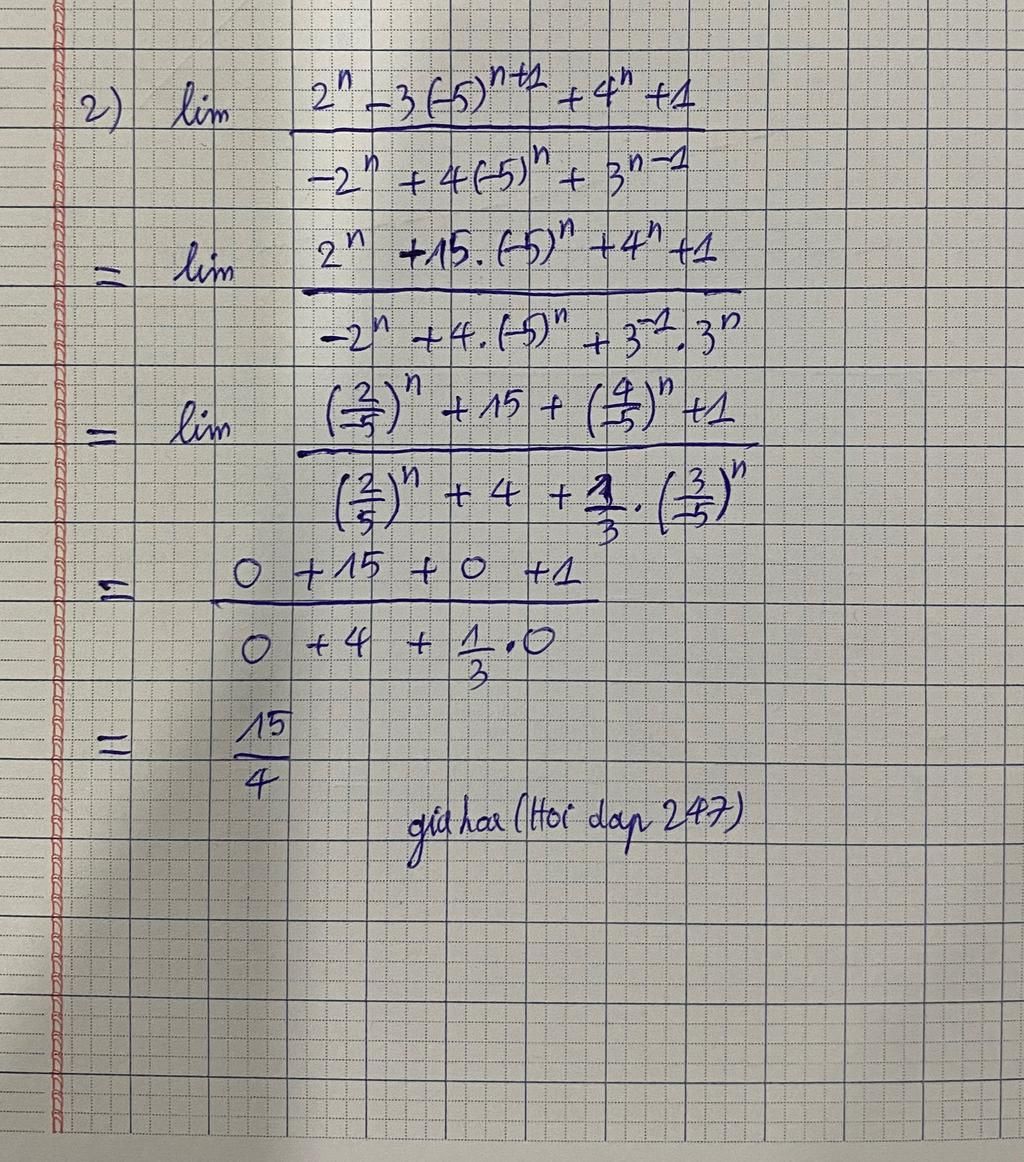 2) lim (2ⁿ - 3(-5)ⁿ⁺¹ + 4ⁿ + 1) / (-2ⁿ + 4(-5)ⁿ + 3ⁿ⁻¹)
= lim (2ⁿ + 15.(-5)ⁿ + 4ⁿ + 1) / (-2ⁿ + 4.(-5)ⁿ + 3⁻¹.3ⁿ)
= lim ((2/-5)ⁿ + 15 + (4/-5)ⁿ + 1) / ((2/5)ⁿ + 4 + 1/3.(3/-5)ⁿ)
= (0 + 15 + 0 + 1) / (0 + 4 + 1/3.0)
= 15/4
giahoa (Hoi dap 247)